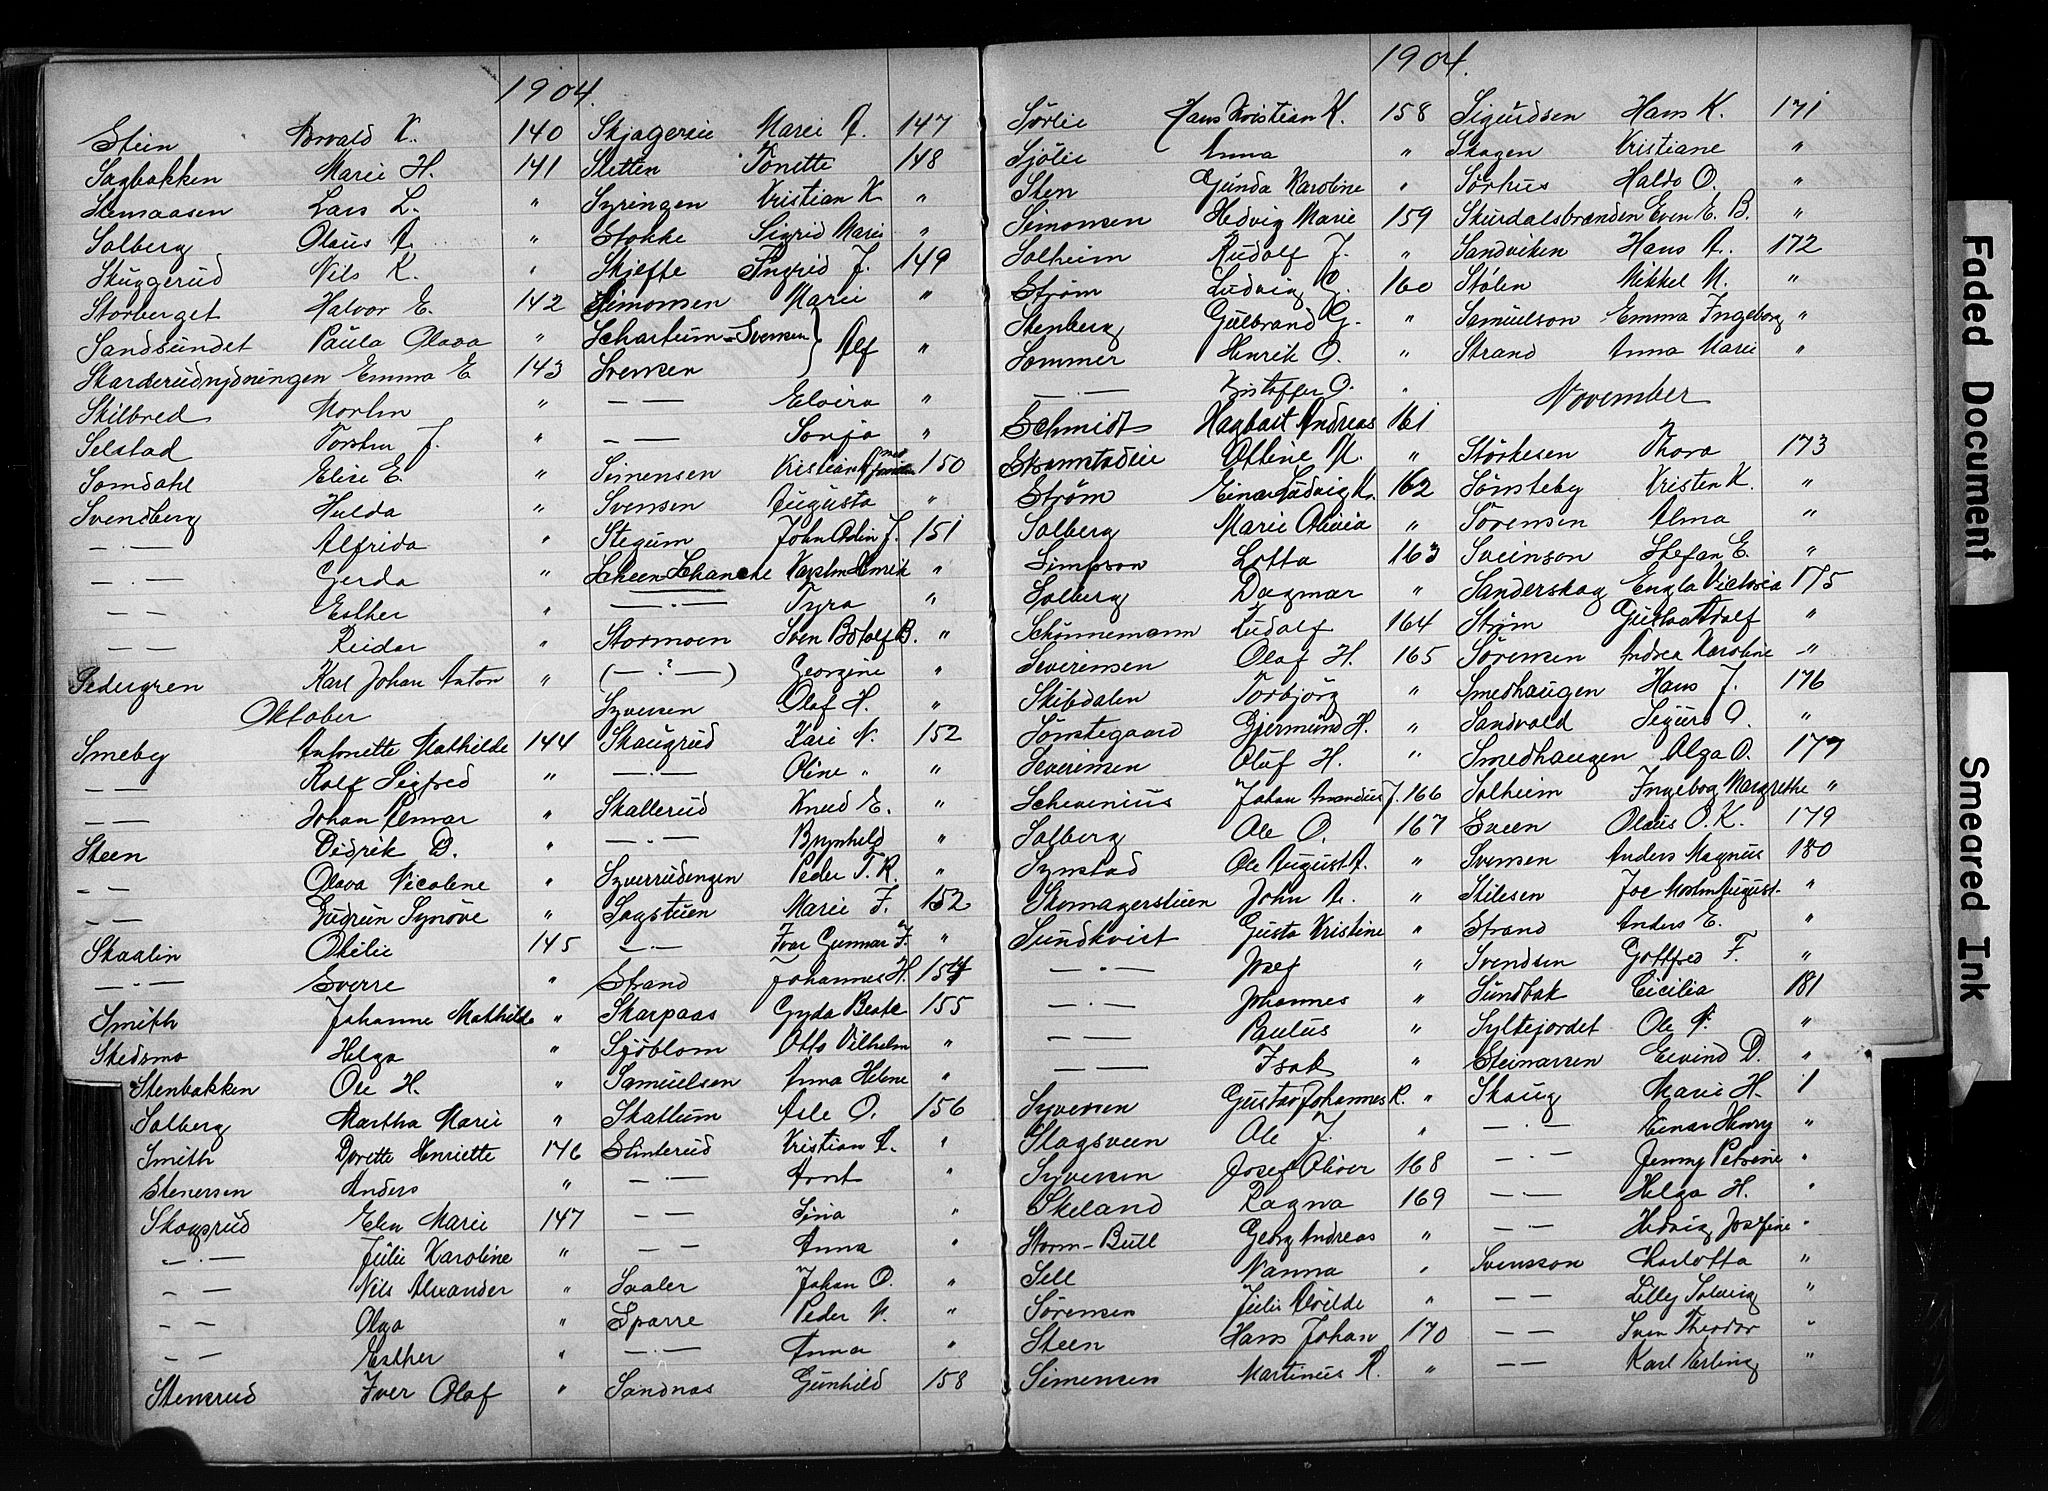 1904.
Stein Torvald K. 140
Sagbakken Marie H. 141
Stemaasen Lars L. "
Solberg Olaus A. "
Skuggerud Nils K. "
Storberget Halvor E. 142
Sandsundet Paula Olava "
Skarderudnydningen Emma E 143
Skilbred Morten "
Selstad Torsten J. "
Somdahl Elise E. "
Svendberg Hulda "
— · — Alfrida "
— · — Gerda "
— · — Esther "
— · — Reidar "
Sedergren Karl Johan Anton "
Oktober
Smeby Antonette Mathilde 144
— — Rolf Sigfred "
— — Johan Elmar "
Steen Didrik D. "
— — Olava Nicoline "
— — Gudrun Synöve "
Skaalin Otilie 145
— · — Sverre "
Smith Johanne Mathilde "
Skedsmo Helga "
Stenbakken Ole H. "
Solberg Martha Marie "
Smith Dorette Henriette 146
Stenersen Anders "
Skogsrud Elen Marie 147
— · — Julie Karoline "
— — Nils Alexander "
— — Olga "
— — Esther "
Stensrud Iver Olaf "
Skjageröie Marie A. 147
Sletten Tonette 148
Syringen Kristian K "
Stokke Sigrid Marie "
Skjefte Ingrid J. 149
Simonsen Marie "
Schartum-Svensen } Alf "
Svensen
— · — Elvira "
— · — Sonja "
Simensen Kristian A. med familien 150
Svensen Augusta "
Stegum John Odin J. 151
Scheen-Schancke Karsten Henrik "
— · — Tyra "
Stormoen Sven Botolf B. "
(— ? —) Georgine "
Syversen Olaf H. "
Skaugrud Kari N. 152
— · — Oline " "
Skallerud Knud E. "
— · — Brynhild "
Syverrudengen Peder T. R. "
Sagstuen Marie F. 152
— · — Ivar Gunnar F. "
Strand Johannes H. 154
Skarpaas Gyda Beate 155
Sjöblom Otto Vilhelm "
Samuelsen Anna Helene "
Skattum Asle O. 156
Slinterud Kristian A. "
— · — Arnt "
— — Sina "
— — Anna "
Svaler Johan O. "
Sparre Peder N. "
— · — Anna "
Sandnas Gunhild 158
1904.
Sørlie Hans Kristian K. 158
Sjölie Anna "
Sten Gunda Karoline "
Simonsen Hedvig Marie 159
Solheim Rudolf J. "
Strøm Ludvig G. 160
Stenberg Gulbrand G. "
Sommer Henrik O. "
— · — Kristoffer O. "
Schmidt Hagbart Andreas 161
Strømstadlie Oline M. "
Strøm Einar Ludvig K. 162
Solberg Marie Olivia "
Simpson Lotta 163
Solberg Dagmar "
Schönnemann Rudolf 164
Severinsen Olaf H. 165
Skibdalen Torbjörg "
Sönstegaard Gjermund H. "
Severinsen Oluf H. "
Schevenius Johan Amandus J. 166
Solberg Ole O. 167
Synstad Ole August A. "
Skomagerstuen John A. "
Sundkvist Gusta Kristine "
— · — Josef "
— · — Johannes "
— — Paulus "
— — Isak "
Syversen Gustav Johannes R. "
Stagsveen Ole J. "
Syversen Josef Oliver 168
Skeland Ragna 169
Storm-Bull Georg Andreas "
Sell Nanna "
Sørensen Julie Alvilde "
Steen Hans Johan 170
Simensen Martinus R. "
Sigurdsen Hans K. 171
Skogen Kristiane "
Sörhus Haldo O. "
Skurdalsbranden Even E. B. "
Sandviken Hans A. 172
Stølen Mikkel M. "
Samuelson Emma Ingeborg "
Strand Anna Marie "
November
Störkesen Thora 173
Sönsteby Kristen K. "
Sörensen Alma "
Sveinson Stefan E. "
Sanderskog Engla Victoria 175
Strøm Gustav Adolf "
Sörensen Andrea Karoline "
Smedhaugen Hans J. 176
Sandvold Sigurd O. "
Smedhaugen Olga O. 177
Solheim Ingeborg Margrethe "
Sveen Olaus O. K. 179
Svensen Anders Magnus 180
Stilesen Joe Morten August "
Strand Anders E. "
Svendsen Gottfred F. "
Sundbak Cicilia 181
Syltejordet Ole P. "
Steinarren Eivind D. "
Skaug Marie H. 1
— · — Einar Henry "
— · — Jenny Petrine "
— — Helga H. "
— — Hedvig Josefine "
Svensson Charlotta "
— — Lilly Solveig "
— — Sven Theodor "
— — Karl Erling "
Faded Document
Smeared Ink